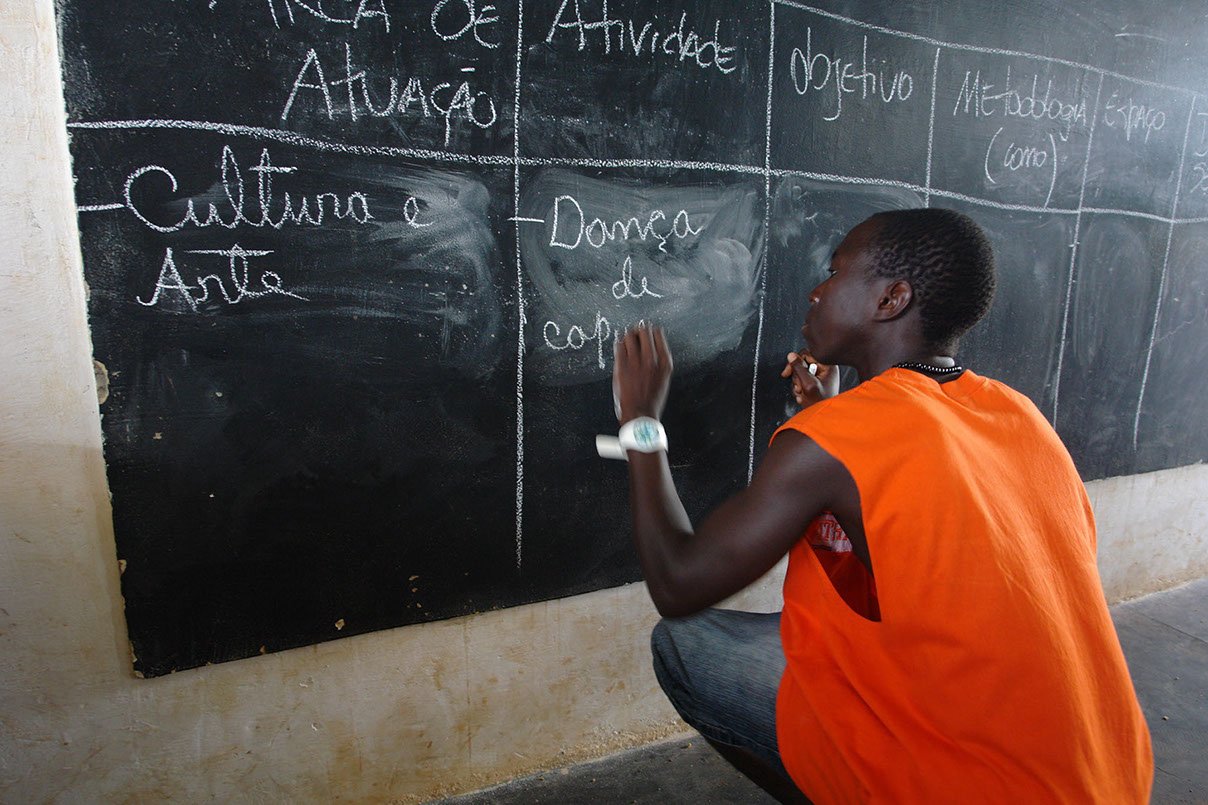 ÁREA DE
Atuação
Atividade
Objetivo
Metodologia
(como)
Espaço
Cultura e
Arte
- Dança
de